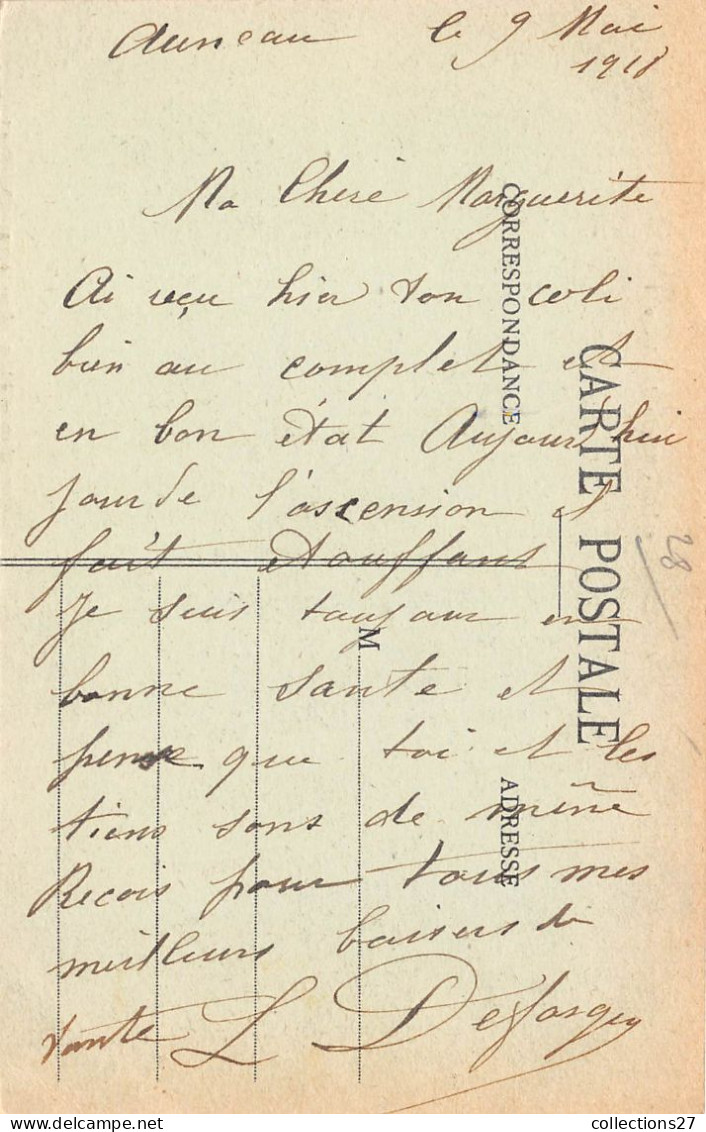 Auneau le 9 Mai
1918
Ma Chère Marguerite
Ai reçu hier ton coli
bien au complet et
en bon état Aujourd'hui
jour de l'ascension il
fait etouffant
Je suis toujour en
bonne sante et
pense que toi et les
tiens sont de même
Recois pour tous mes
meilleurs baisers de
tante L Desforges
CORRESPONDANCE
CARTE POSTALE
M
ADRESSE
28
collections27